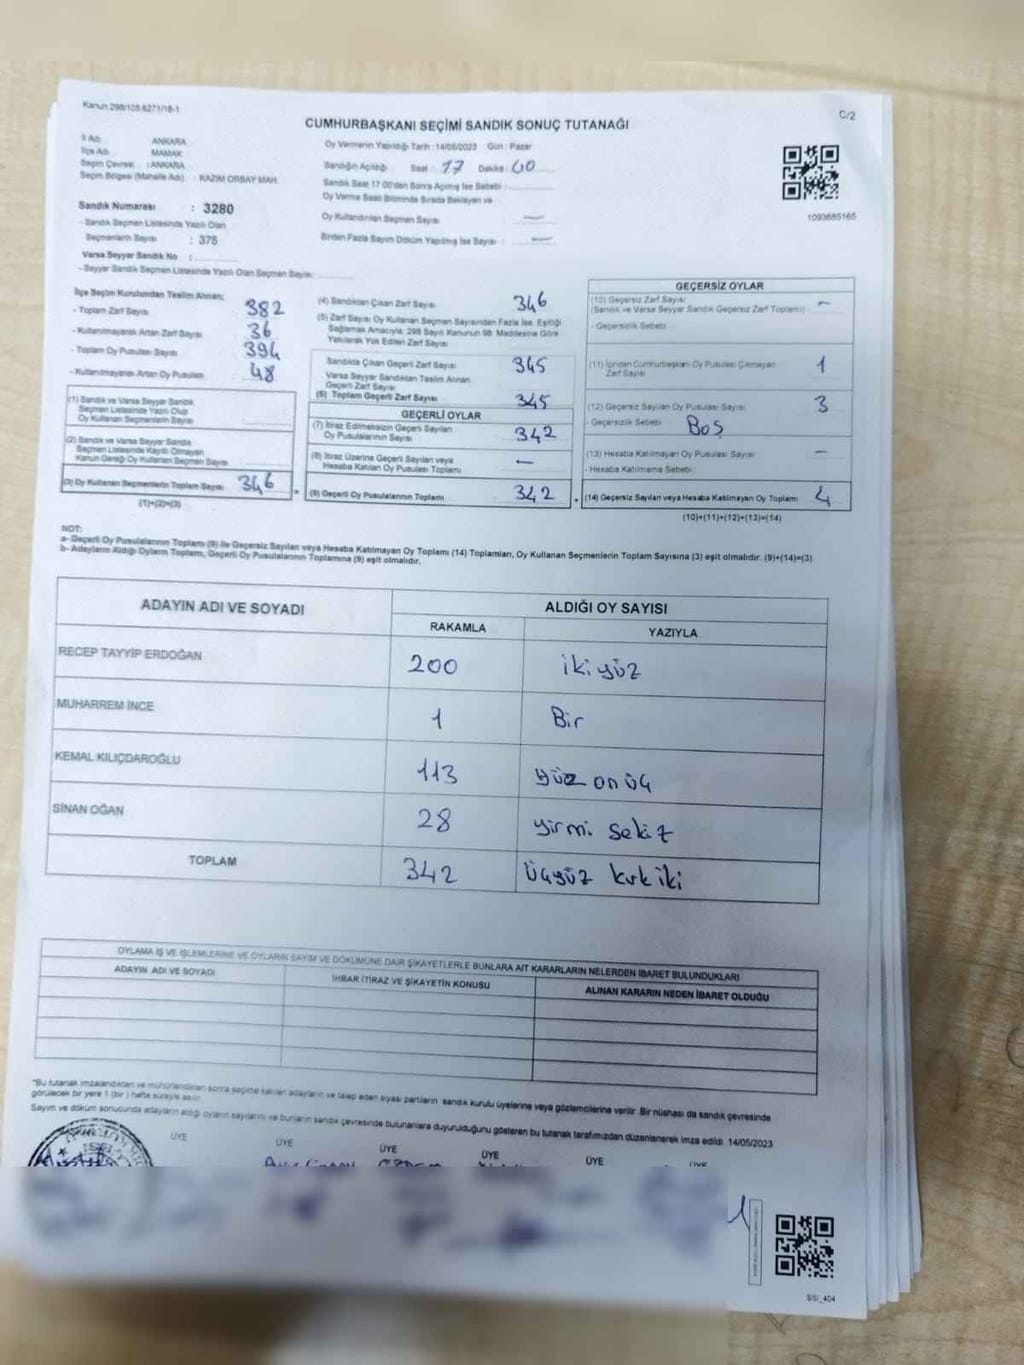 Kanun 298/105 6271/18-1
C/2
CUMHURBAŞKANI SEÇİMİ SANDIK SONUÇ TUTANAĞI
İl Adı : ANKARA
İlçe Adı : MAMAK
Seçim Çevresi : ANKARA
Seçim Bölgesi (Mahalle Adı) : KAZIM ORBAY MAH.
Sandık Numarası : 3280
- Sandık Seçmen Listesinde Yazılı Olan
Seçmenlerin Sayısı : 375
Varsa Seyyar Sandık No :
- Seyyar Sandık Seçmen Listesinde Yazılı Olan Seçmen Sayısı:
Oy Vermenin Yapıldığı Tarih : 14/05/2023 Gün : Pazar
Sandığın Açıldığı Saat : 17 Dakika : 00
Sandık Saat 17:00'den Sonra Açılmış İse Sebebi :
Oy Verme Saati Bitiminde Sırada Bekleyen ve
Oy Kullandırılan Seçmen Sayısı : —
Birden Fazla Sayım Döküm Yapılmış İse Sayısı : —
1093685165
İlçe Seçim Kurulundan Teslim Alınan;
- Toplam Zarf Sayısı 382
- Kullanılmayarak Artan Zarf Sayısı 36
- Toplam Oy Pusulası Sayısı 394
- Kullanılmayarak Artan Oy Pusulası 48
(1) Sandık ve Varsa Seyyar Sandık
Seçmen Listesinde Yazılı Olup
Oy Kullanan Seçmenlerin Sayısı
(2) Sandık ve Varsa Seyyar Sandık
Seçmen Listesinde Kayıtlı Olmayan
Kanun Gereği Oy Kullanan Seçmen Sayısı
(3) Oy Kullanan Seçmenlerin Toplam Sayısı 346
(1)+(2)=(3)
(4) Sandıktan Çıkan Zarf Sayısı 346
(5) Zarf Sayısı Oy Kullanan Seçmen Sayısından Fazla İse, Eşitliği
Sağlamak Amacıyla; 298 Sayılı Kanunun 98. Maddesine Göre
Yakılarak Yok Edilen Zarf Sayısı
Sandıkta Çıkan Geçerli Zarf Sayısı 345
Varsa Seyyar Sandıktan Teslim Alınan
Geçerli Zarf Sayısı
(6) Toplam Geçerli Zarf Sayısı 345
GEÇERLİ OYLAR
(7) İtiraz Edilmeksizin Geçerli Sayılan
Oy Pusulalarının Sayısı 342
(8) İtiraz Üzerine Geçerli Sayılan veya
Hesaba Katılan Oy Pusulası Toplamı —
(9) Geçerli Oy Pusulalarının Toplamı 342
GEÇERSİZ OYLAR
(10) Geçersiz Zarf Sayısı
(Sandık ve Varsa Seyyar Sandık Geçersiz Zarf Toplamı) —
- Geçersizlik Sebebi :
(11) İçinden Cumhurbaşkanı Oy Pusulası Çıkmayan
Zarf Sayısı 1
(12) Geçersiz Sayılan Oy Pusulası Sayısı 3
- Geçersizlik Sebebi : Boş
(13) Hesaba Katılmayan Oy Pusulası Sayısı —
- Hesaba Katılmama Sebebi :
(14) Geçersiz Sayılan veya Hesaba Katılmayan Oy Toplamı 4
(10)+(11)+(12)+(13)=(14)
NOT:
a- Geçerli Oy Pusulalarının Toplamı (9) ile Geçersiz Sayılan veya Hesaba Katılmayan Oy Toplamı (14) Toplamları, Oy Kullanan Seçmenlerin Toplam Sayısına (3) eşit olmalıdır. (9)+(14)=(3)
b- Adayların Aldığı Oyların Toplamı, Geçerli Oy Pusulalarının Toplamına (9) eşit olmalıdır.
ADAYIN ADI VE SOYADI ALDIĞI OY SAYISI
RAKAMLA YAZIYLA
RECEP TAYYİP ERDOĞAN 200 ikiyüz
MUHARREM İNCE 1 Bir
KEMAL KILIÇDAROĞLU 113 yüz onüç
SİNAN OĞAN 28 yirmi sekiz
TOPLAM 342 Üçyüz kırkiki
OYLAMA İŞ VE İŞLEMLERİNE VE OYLARIN SAYIM VE DÖKÜMÜNE DAİR ŞİKAYETLERLE BUNLARA AİT KARARLARIN NELERDEN İBARET BULUNDUKLARI
ADAYIN ADI VE SOYADI İHBAR İTİRAZ VE ŞİKAYETİN KONUSU ALINAN KARARIN NEDEN İBARET OLDUĞU
"Bu tutanak imzalandıktan ve mühürlendikten sonra seçime katılan adayların ve talep eden siyasi partilerin sandık kurulu üyelerine veya gözlemcilerine verilir. Bir nüshası da sandık çevresinde
görülecek bir yere 1 (bir) hafta süreyle asılır.
Sayım ve döküm sonucunda adayların aldığı oyların sayılarını ve bunların sandık çevresinde bulunanlara duyurulduğunu gösteren bu tutanak tarafımızdan düzenlenerek imza edildi. 14/05/2023
ÜYE ÜYE ÜYE ÜYE ÜYE ÜYE
SSI_404